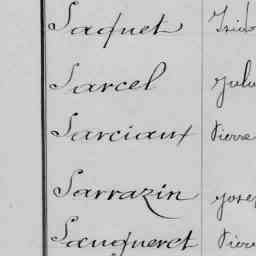 Saquet Isido
Sarcel Jules
Sarciaux Pierre
Sarrazin Josep
Sauqueret Pierr